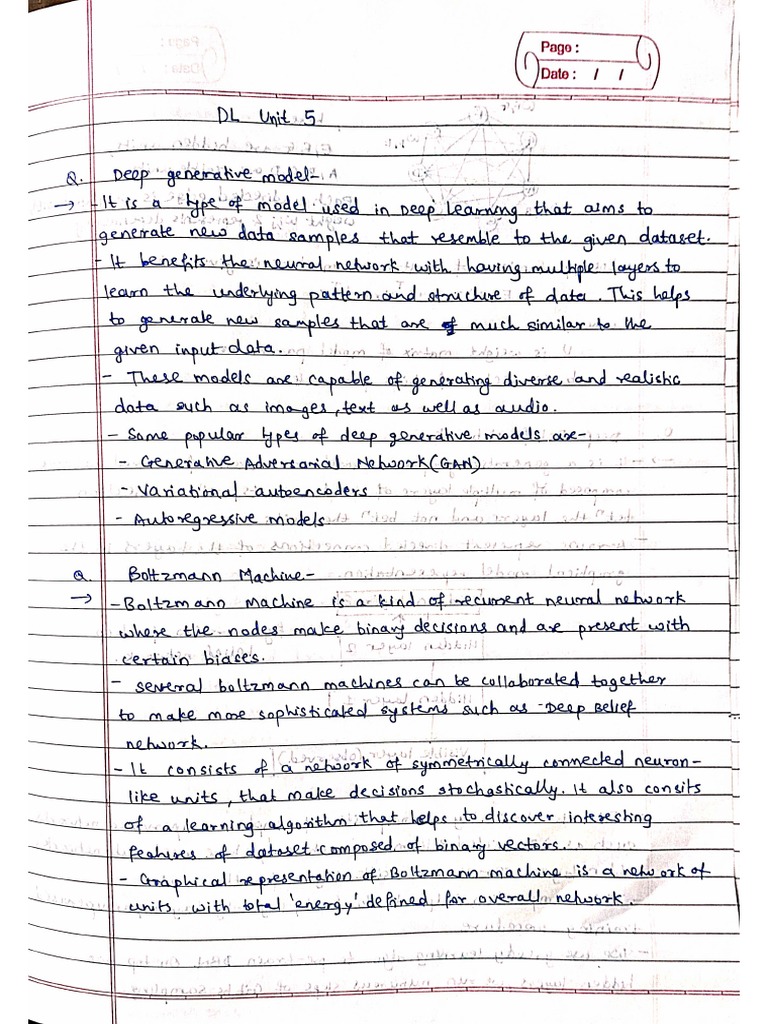 Page :
Date : / /
DL Unit 5
Q. Deep generative model-
→ - It is a type of model used in Deep Learning that aims to
generate new data samples that resemble to the given dataset.
- It benefits the neural network with having multiple layers to
learn the underlying pattern and structure of data. This helps
to generate new samples that are much similar to the
given input data.
- These models are capable of generating diverse and realistic
data such as images, text as well as audio.
- Some popular types of deep generative models are-
- Generative Adversarial Network (GAN)
- Variational autoencoders
- Autoregressive models
Q. Boltzmann Machine-
→ - Boltzmann machine is a kind of recurrent neural network
where the nodes make binary decisions and are present with
certain biases.
- Several boltzmann machines can be collaborated together
to make more sophisticated systems such as Deep Belief
network.
- It consists of a network of symmetrically connected neuron-
like units, that make decisions stochastically. It also consits
of a learning algorithm that helps to discover interesting
features of dataset composed of binary vectors.
- Graphical representation of Boltzmann machine is a network of
units with total 'energy' defined for overall network.